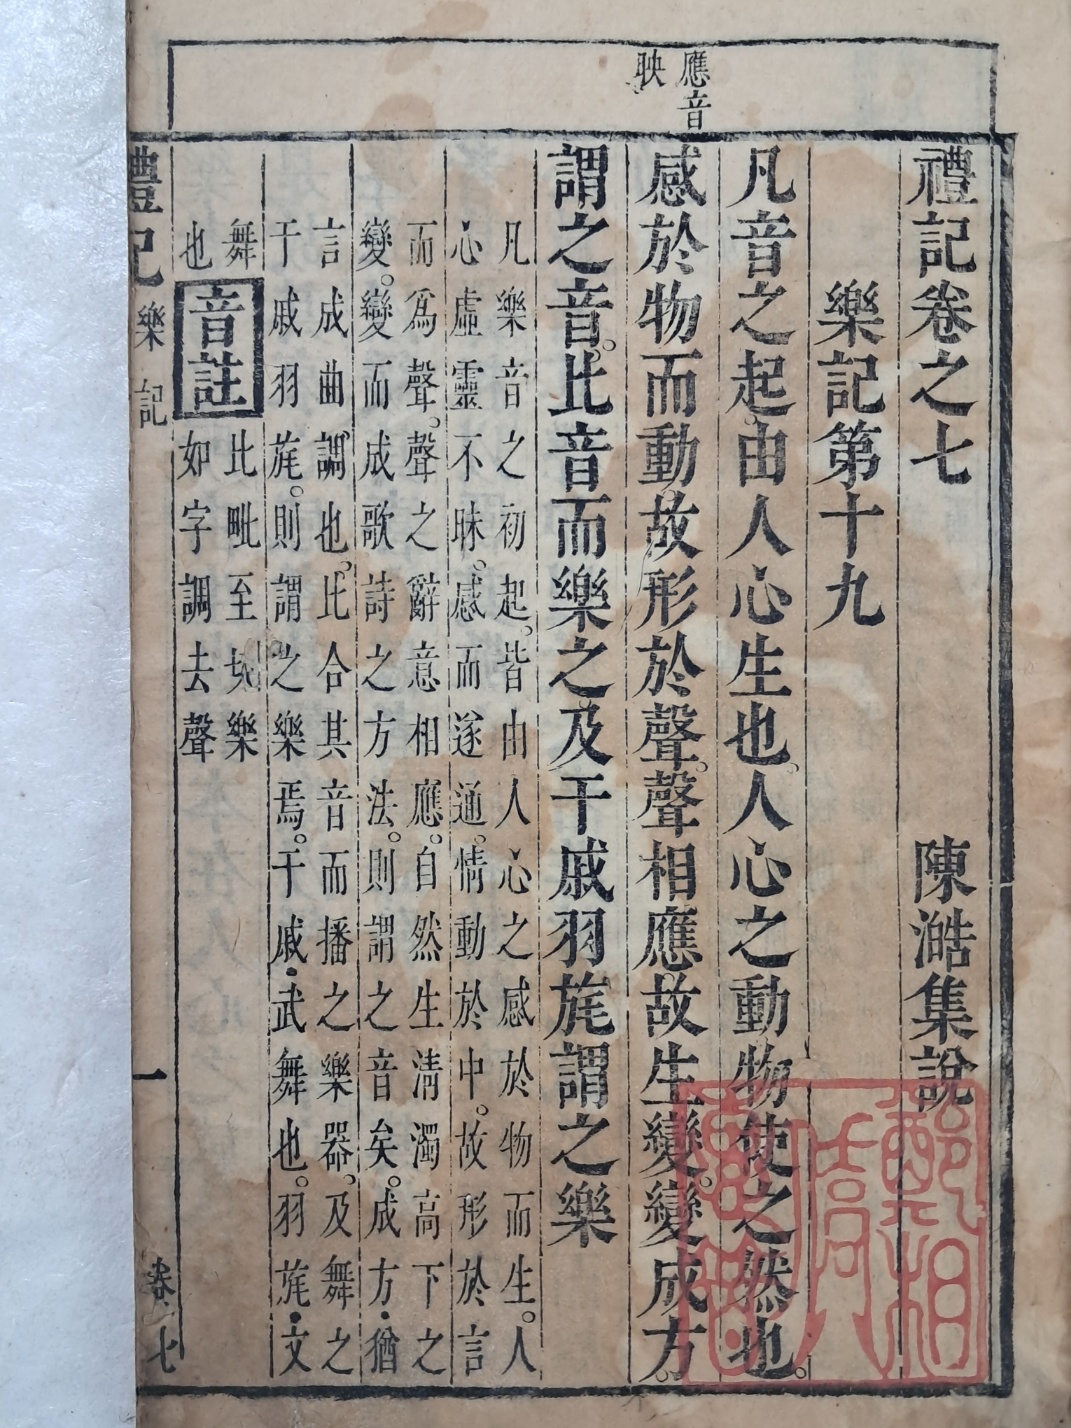 應音
映
禮記卷之七 陳澔集說
樂記第十九
凡音之起。由人心生也。人心之動物使之然也。
感於物而動。故形於聲。聲相應。故生變。變成方。
謂之音。比音而樂之。及干戚羽旄謂之樂
凡樂音之初起。皆由人心之感於物而生。人
心虛靈不昧。感而遂通。情動於中。故形於言
而爲聲。聲之辭意相應。自然生淸濁高下之
變。變而成歌詩之方法。則謂之音矣。成方・猶
言成曲調也。比合其音而播之樂器。及舞之
干戚羽旄。則謂之樂焉。干戚・武舞也。羽旄・文
舞
也
音註
比毗至切樂
如字調去聲
禮記 樂記 一 卷七